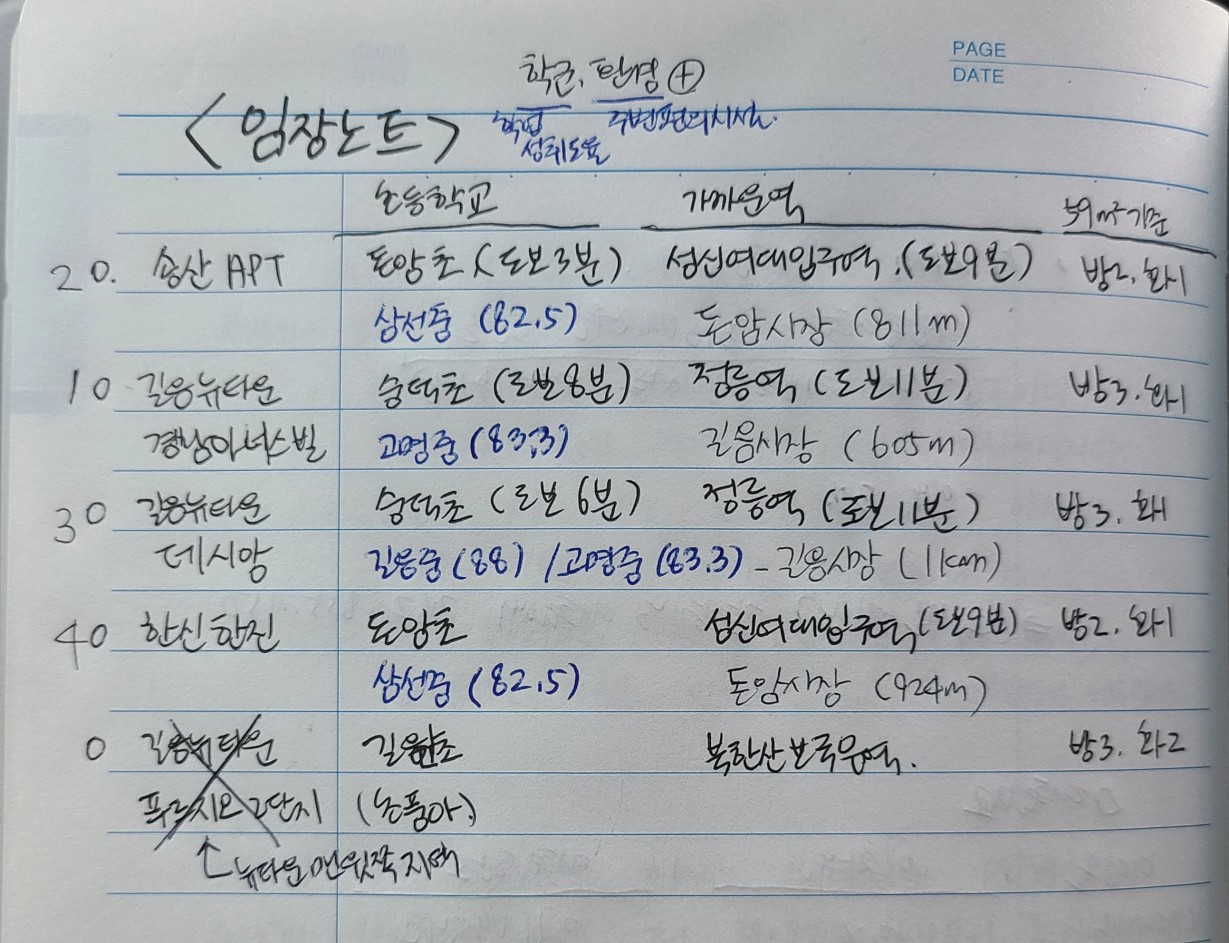 PAGE
DATE
학군, 환경 ⊕
<임장노트>
학업 성취도율
주변편의시설.
초등학교 가까운역 59㎡기준
20. 송산APT 돈암초 (도보3분) 성신여대입구역.(도보9분) 방2, 화1
삼선중 (82.5) 돈암시장 (811m)
10 길음뉴타운 숭덕초 (도보8분) 정릉역 (도보11분) 방3. 화1
경남아너스빌 고명중 (83.3) 길음시장 (605m)
30 길음뉴타운 숭덕초 (도보6분) 정릉역 (도보11분) 방3. 화1
데시앙 길음중 (88) / 고명중 (83.3) - 길음시장 (1km)
40 한신한진 돈암초 성신여대입구역(도보9분) 방2, 화1
삼선중 (82.5) 돈암시장 (924m)
0 길음뉴타운 길음초 북한산보국문역. 방3. 화2
푸르지오2단지 (초품아.)
↑ 뉴타운 맨윗쪽 지역